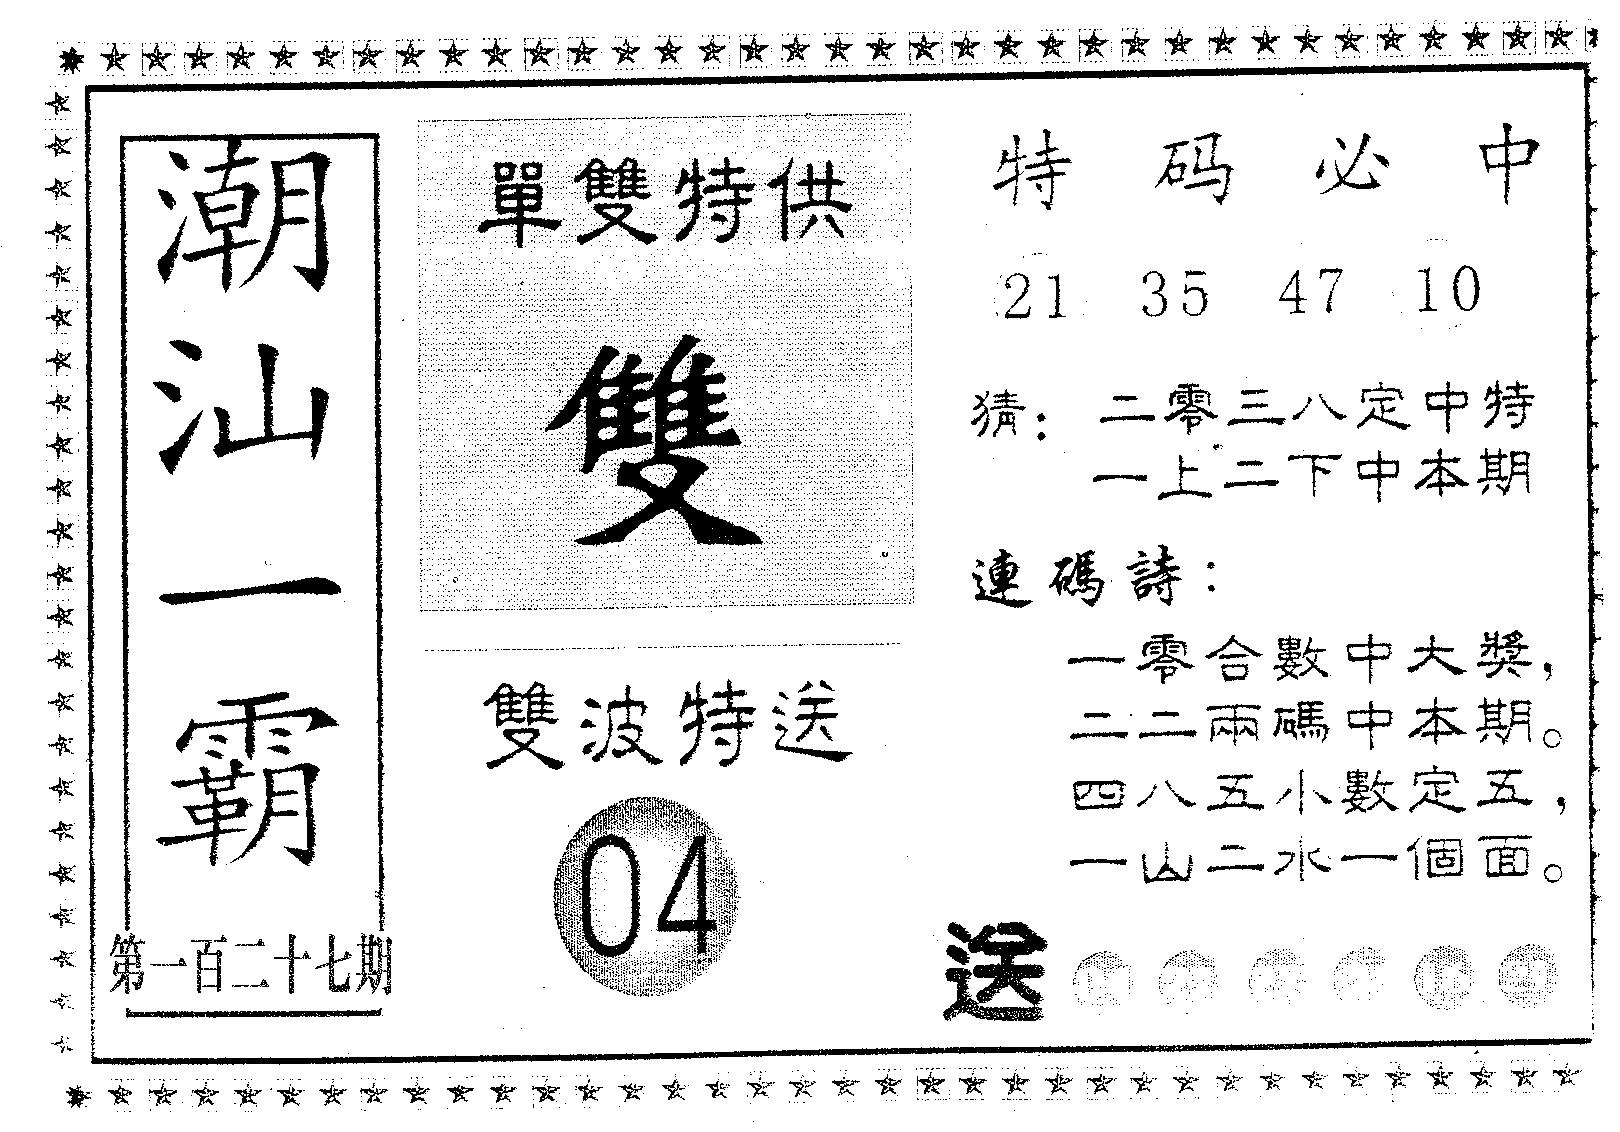 潮汕一霸
第一百二十七期
單雙特供
雙
雙波特送
04
特码必中
21 35 47 10
猜：二零三八定中特
一上二下中本期
連碼詩：
一零合數中大獎，
二二兩碼中本期。
四八五小數定五，
一山二水一個面。
送